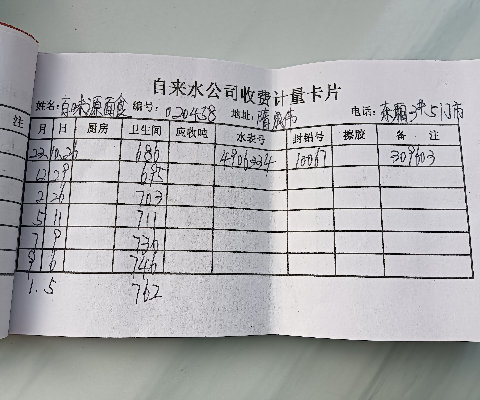 自来水公司收费计量卡片
姓名: 百味源面食 编号: 020438 地址: 电话: 东厢3#5门市
注 月 日 厨房 卫生间 应收吨 水表号 封铅号 擦胶 备注
22 10.26 686 4906334 10067 309603
12 29 695
2 26 703
5 11 711
7 9 736
9 6 746
1.5 762